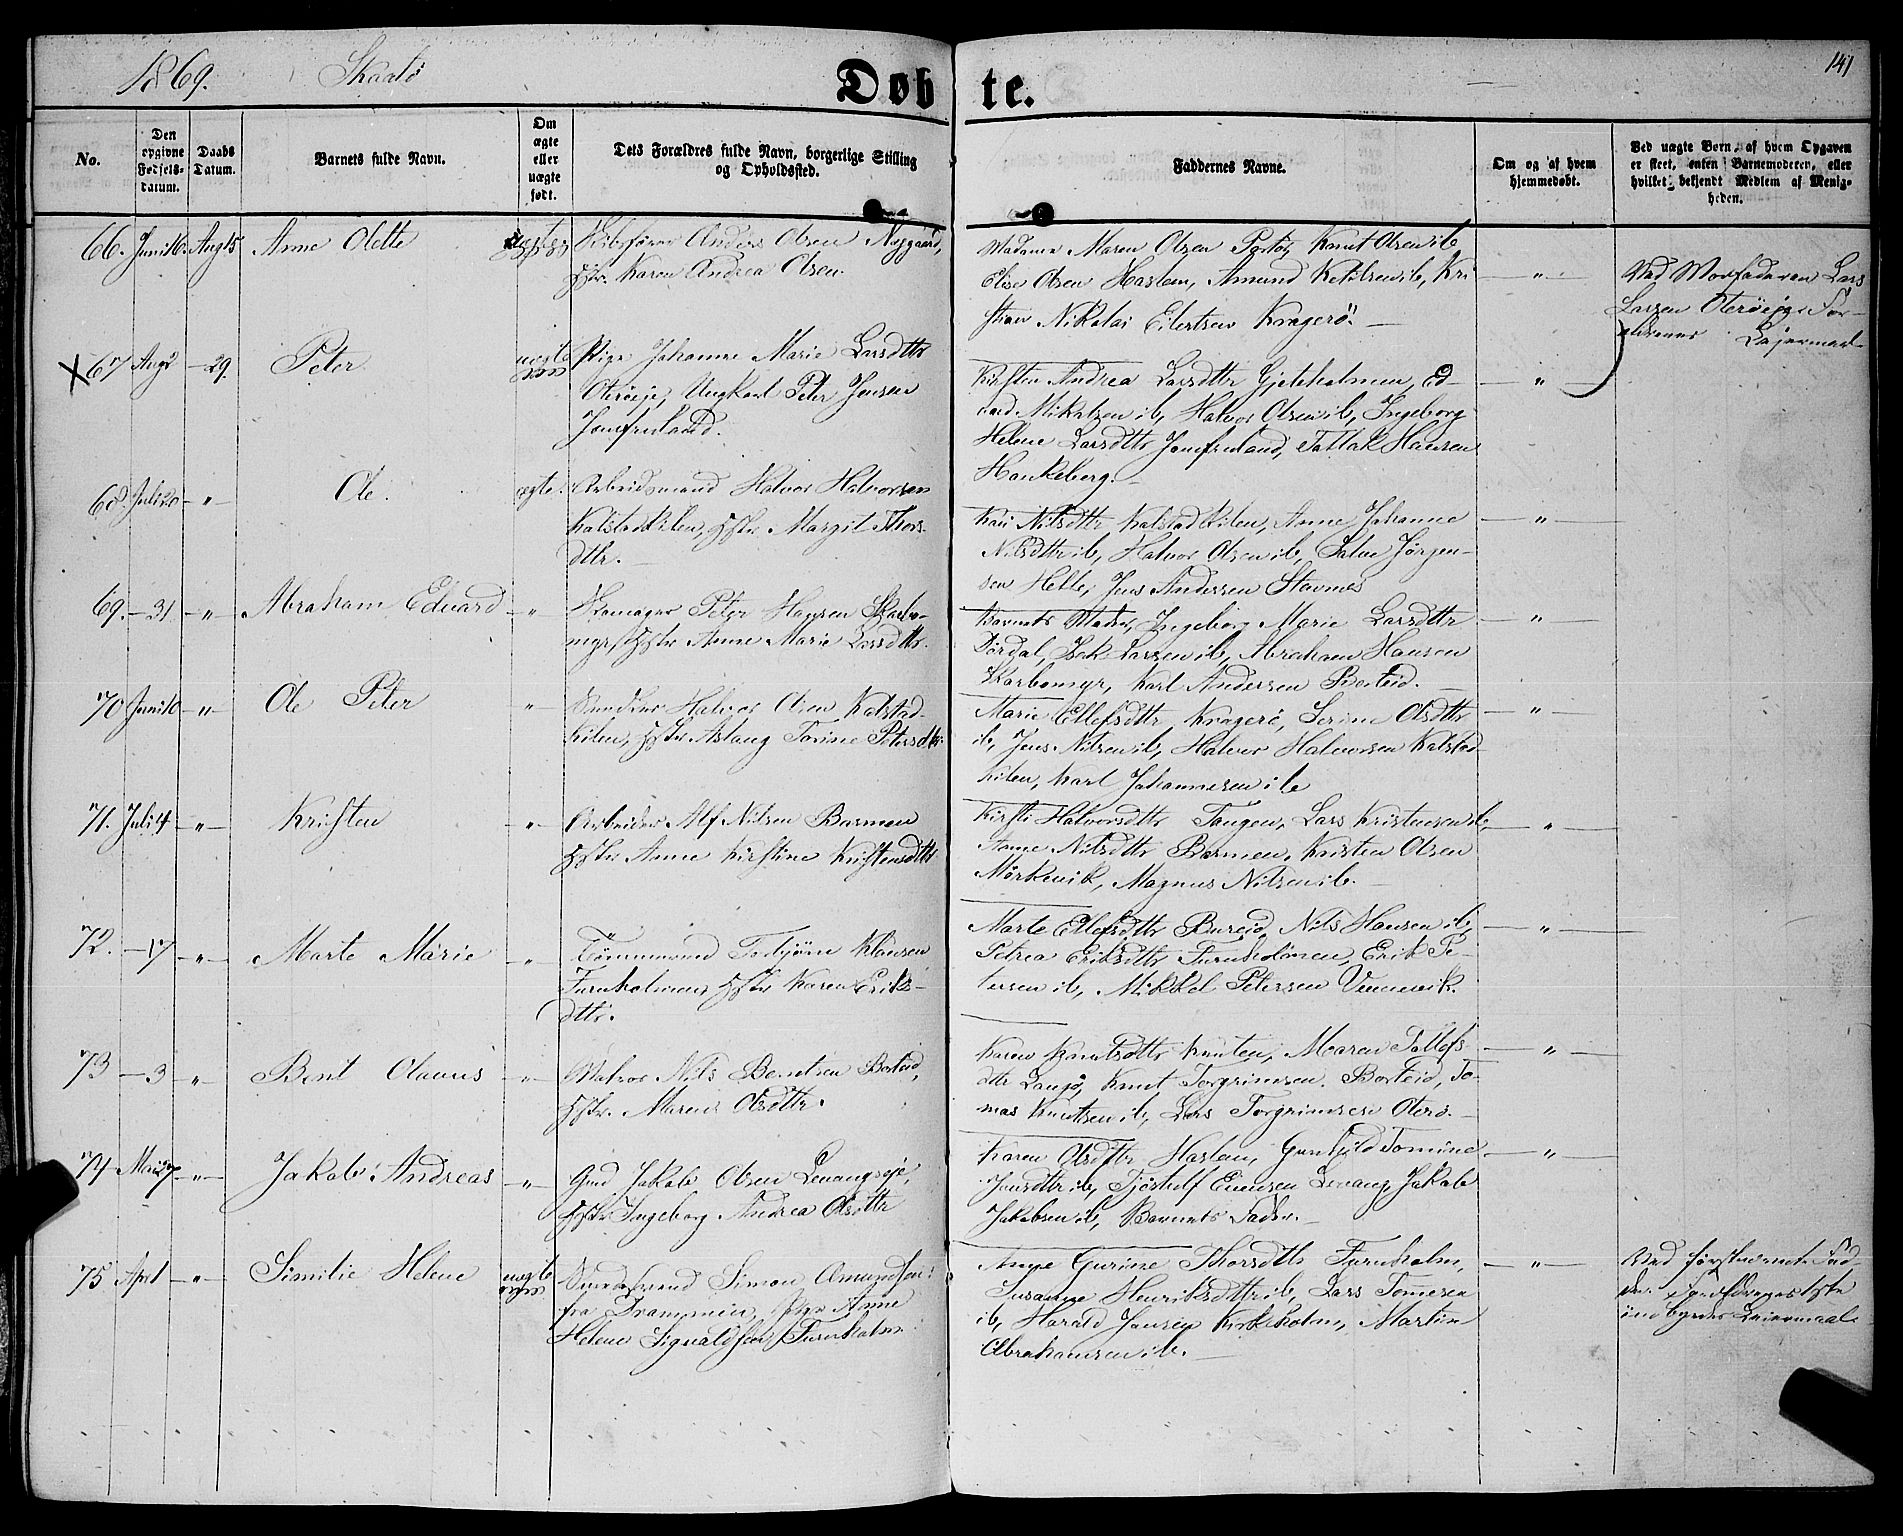 1869. Skaatö
Døbte.
141
No.
Den opgivne Fødselsdatum.
Daabs Datum.
Barnets fulde Navn.
Om ægte eller uægte født.
Dets Forældres fulde Navn, borgerlige Stilling og Opholdssted.
Faddernes Navne.
Om og af hvem hjemmedøbt.
Ved uægte Børn, af hvem Opgaven er skeet, enten Barnemoderen, eller hvilket bekjendt Medlem af Menigheden.
66. Juni 16 Aug 15 Anne Olette
Skibsfører Anders Olsen Nygaard,
Hstr. Karen Andrea Olsen.
Madame Maren Olsen Portör, Knut Olsen ib,
Elise Olsen Haslem, Amund Ketilsen ib, Kri
stian Nikolai Eilertsen Kragerö. —
X 67 Aug 2 — 29. Peter uægte
Pige Johanne Marie Larsdttr
Oteröeje, Ungkarl Peter Jensen
Jomfruland.
Kirsten Andrea Larsdttr Gjeteholmen, Ed-
vard Mikalsen ib, Halvor Olsen ib, Ingeborg
Helene Larsdttr Jomfruland, Tallak Hansen
Haukeberg. —
— " —
Ved Morfaderen Lars
Larsen Oteröeje For-
ældrenes Lejermaal
68. Juli 20 — " Ole. ægte.
Arbeidsmand Halvor Halvorsen
Kalstadkilen, Hstr. Margit Thors-
dttr. —
Kari Nilsdttr Kalstadkilen, Anne Johanne
Nilsdttr ib, Halvor Olsen ib, Salve Jörgen-
sen Helle, Jens Andersen Stavnes
— " —
69. — 31 — " Abraham Edvard — " —
Skomager Peter Hansen Skarbo-
myr, Hstr Anne Marie Larsdttr.
Barnets Moder, Ingeborg Marie Larsdttr
Dördal, Isak Larsen ib, Abraham Hansen
Skarbomyr, Karl Andersen Borteid. —
— " —
70 Juni 10 — " — Ole Peter — " —
Snedker Halvor Olsen Kalstad-
kilen, Hstr Aslaug Torine Petersdttr.
Marie Ellefsdttr Kragerö, Serine Olsdttr
ib, Jens Nilsen ib, Halvor Halvorsen Kalstad-
kilen, Karl Johannesen ib
— " —
71. Juli 4 — " — Kristen — " —
Arbeider Alf Nilsen Barmen
Hstr Anne Kirstine Kristensdttr
Kirsti Halvorsdttr Tangen, Lars Kristensen ib,
Anne Nilsdttr Barmen, Kristen Olsen
Mörkevik, Magnus Nilsen ib. —
— " —
72. — 17 — " — Marte Marie — " —
Tömmermand Torbjörn Klausen
Furuholmen, Hstr Karen Eriks-
dttr.
Marte Ellefsdttr Bureid, Nils Hansen ib,
Petrea Eriksdttr Furuholmen, Erik Pe-
tersen ib, Mikkel Petersen Vennevik.
— " —
73 — 3 — " — Bent Olavus — " —
Matros Nils Bentsen Borteid,
Hstr. Maren Olsdttr.
Karen Knutsdttr Knuten, Maren Tollefs-
dttr Langö, Knut Torgrimsen Borteid, To-
mas Knutsen ib, Lars Torgrimsen Oterö. —
— " —
74 Mai 27 — " — Jakob Andreas — " —
Grd Jakob Olsen Levangseje,
Hstr Ingeborg Andrea Olsdttr
Karen Olsdttr Haslem, Gunhild Tomine
Jensdttr ib, Tjöstolf Evensen Levang, Jakob
Jakobsen ib, Barnets Fader. —
— " —
75 April 1 — " — Similie Helene uægte
Simon Amundsen
fra Drammen, Pige Anne
Helene Sigvaldsen Furuholm.
Anne Gurine Thorsdttr Furuholm,
Susanne Henriksdttr ib, Lars Tomesen
ib, Harald Jansen Kirkeholm, Martin
Abrahamsen ib. —
— " —
Ved förstnævnte Fad-
der. Forældrenes 1ste
indbyrdes Leiermaal.